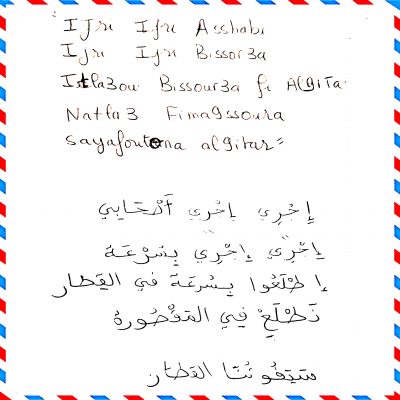 IJri Ijri Asshabi
Ijri Ijri Bissor3a
Itla3ou Bissour3a fi AlgiTa
Natla3 Fimagssoura
Sayafoutona algitar=
إِجْرِي إِجْرِي أَصْحَابِي
إِجْرِي إِجْرِي بِسُرْعَة
إطْلَعُوا بِسُرعَة في القِطار
نَطْلَعْ فِي المَقْصُورة
سَيَفُوتُنَا القطار